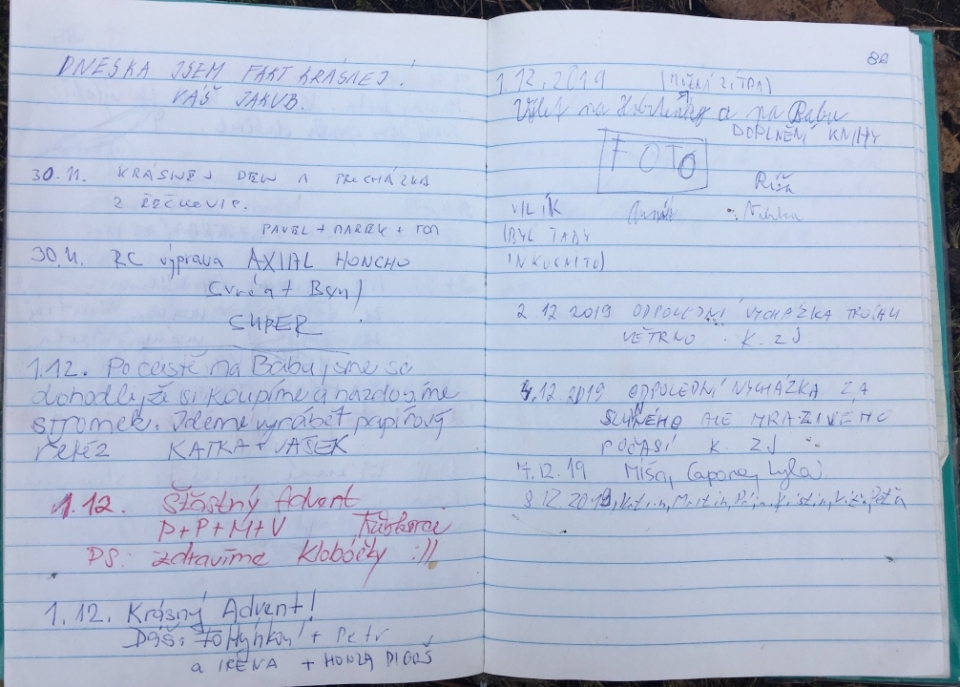 DNESKA JSEM FAKT KRÁSNEJ!
VÁŠ JAKUB.
30.11. KRÁSNEJ DEN A PROCHÁZKA
Z ŘEČKOVIC.
PAVEL + MAREK + TOM
30.11. RC výprava AXIAL HONCHO
SUPER
1.12. Po cestě na Babu jsme se
dohodli, že si koupíme a nazdobíme
stromek. Jdeme vyrábět papírový
řetěz KATKA + VAŠEK
1.12. Šťastný Advent
P+P+M+V
PS: zdravíme Klobóčky :))
1.12. Krásný Advent!
+ Petr
a IRENA + HONZA
82
1.12.2019
Výlet na a na Babu
DOPLNĚNÍ KNIHY
FOTO
Ríša
VILÍK
(BYL TADY
INKOGNITO)
2.12.2019 ODPOLEDNÍ VYCHÁZKA TROCHU
VĚTRNO K. ZJ
4.12.2019 ODPOLEDNÍ VYCHÁZKA ZA
SLUNÉHO ALE MRAZIVÉHO
POČASÍ K. ZJ
7.12.19 Míša,
8.12.2019